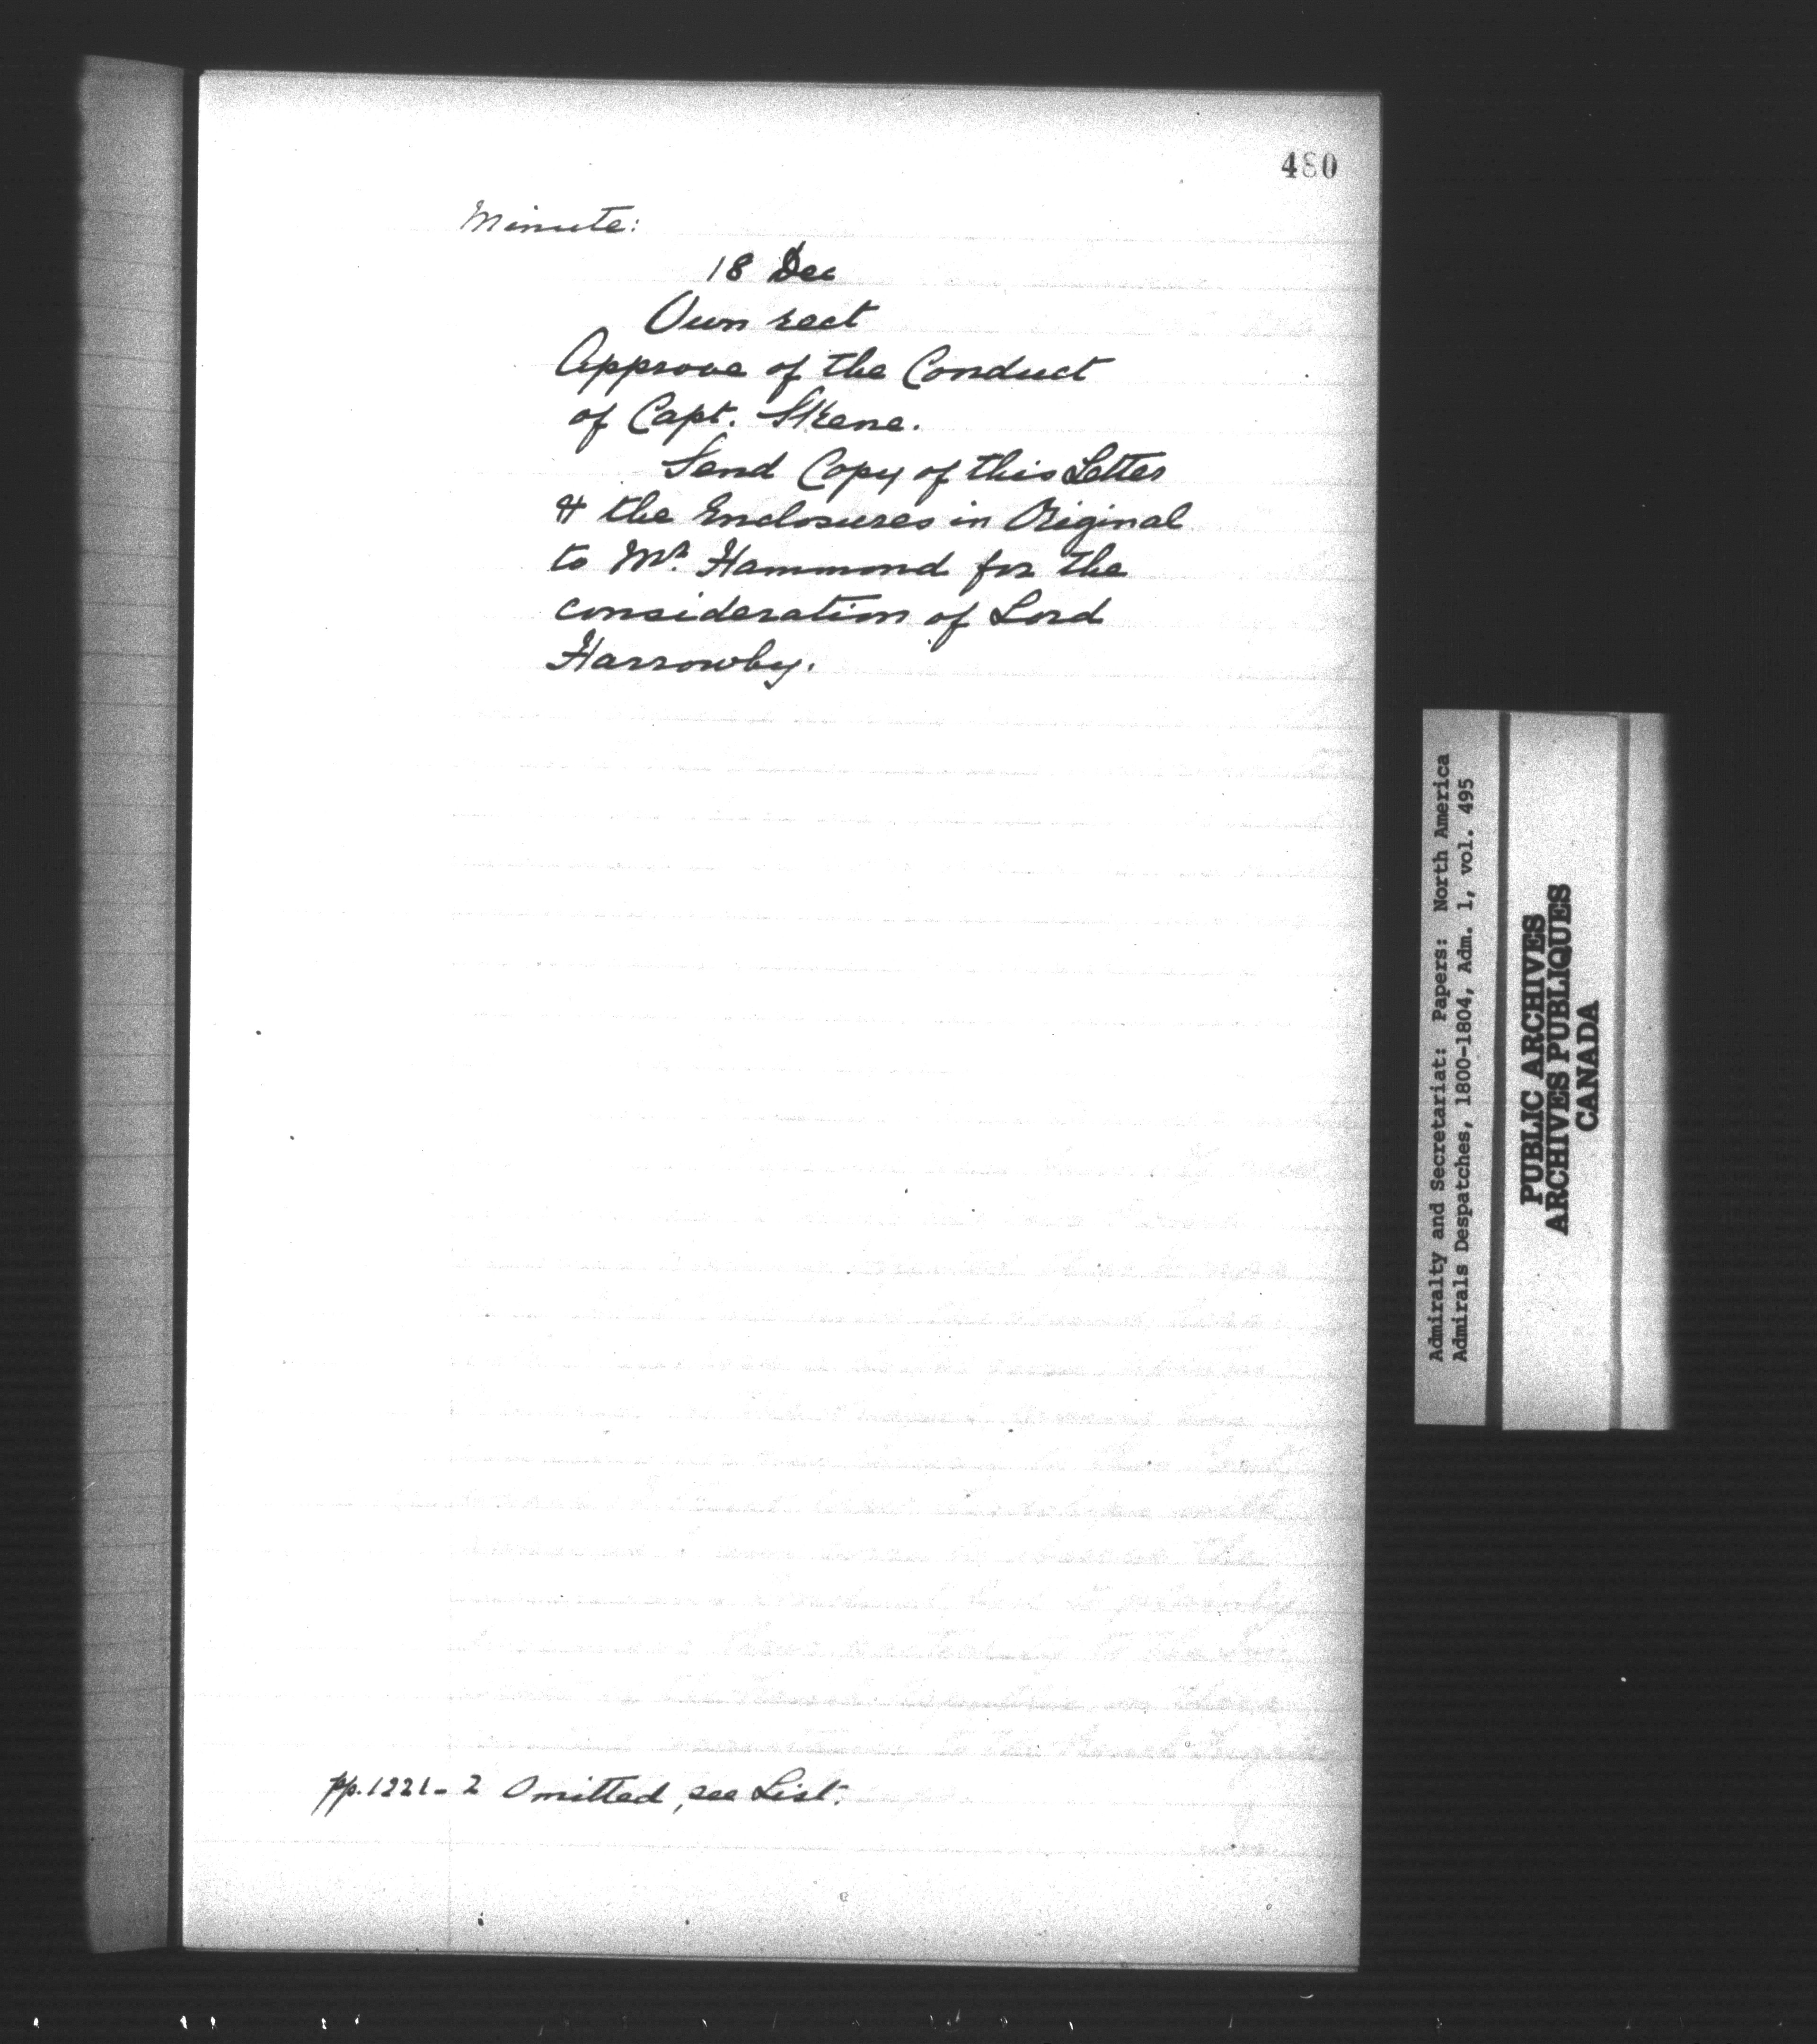 480
Minute:
18 Dec
Own rect
Approve of the Conduct
of Capt. Skene.
Send Copy of this Letter
& the Enclosures in Original
to Mr. Hammond for the
consideration of Lord
Harrowby.
pp. 1221-2 Omitted, see List.
Admiralty and Secretariat: Papers: North America
Admirals Despatches, 1800-1804, Adm. 1, vol. 495
PUBLIC ARCHIVES
ARCHIVES PUBLIQUES
CANADA